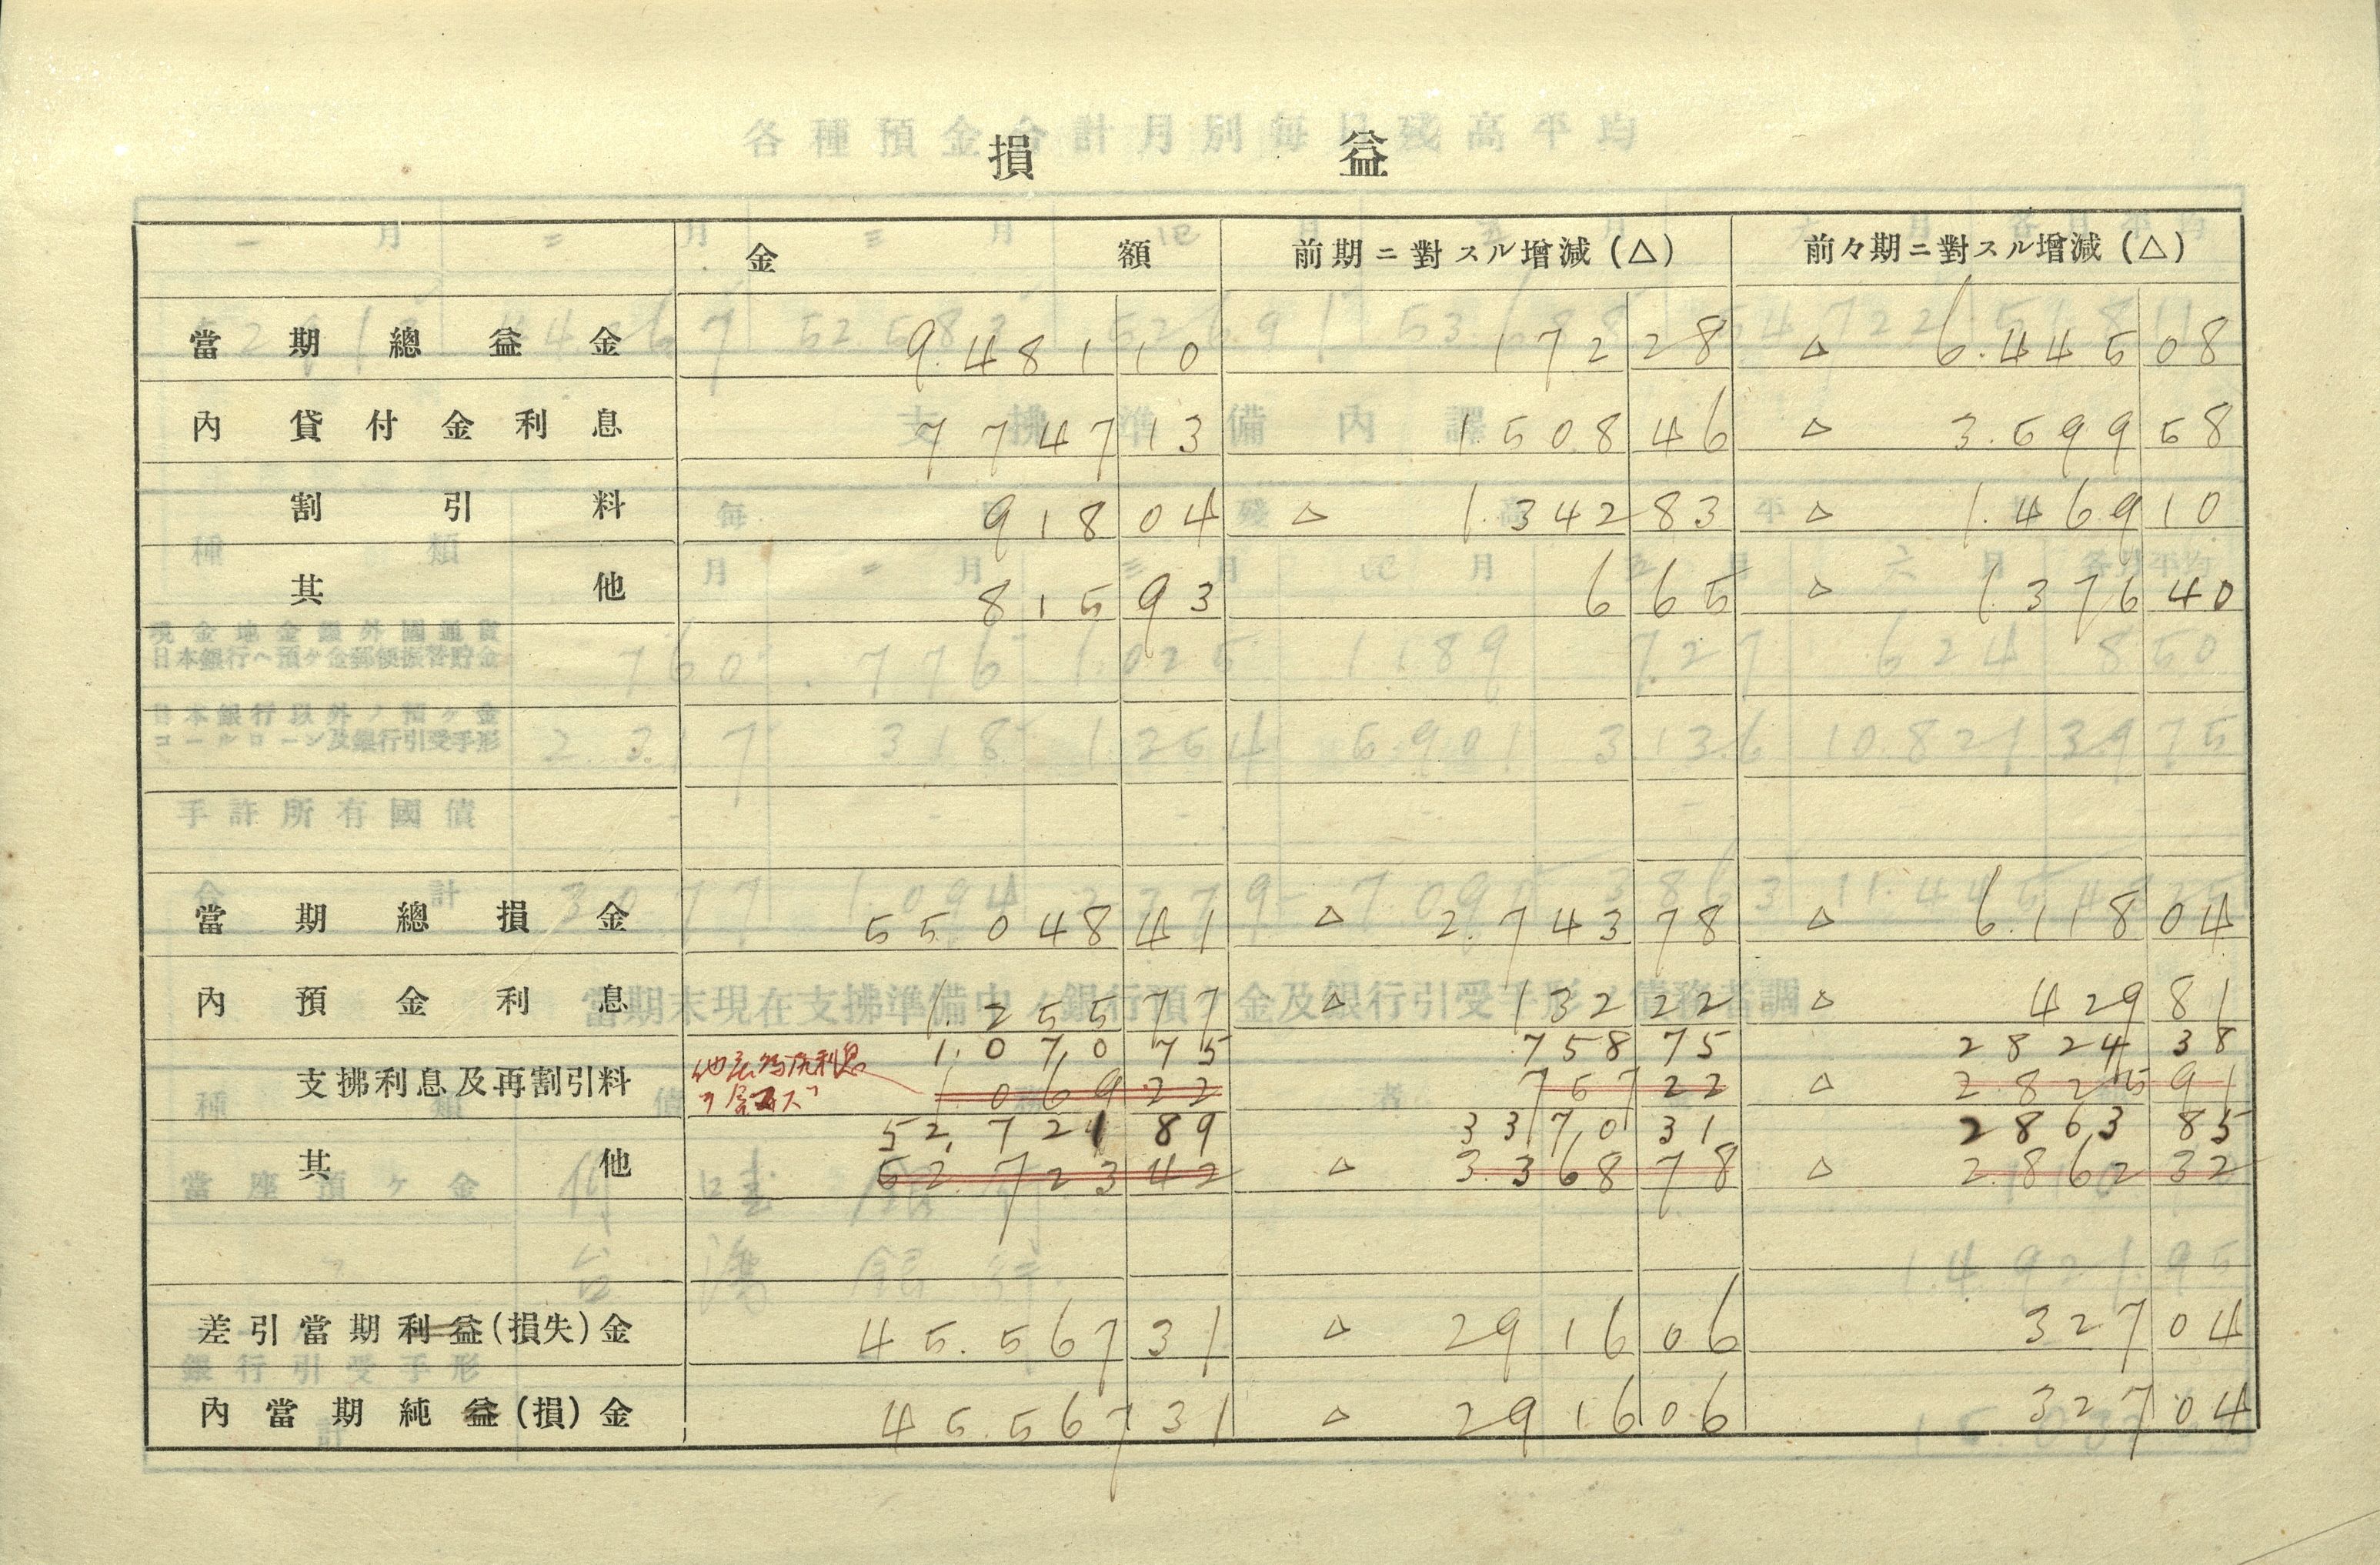 損 益
金 額 前期ニ對スル増減(△) 前々期ニ對スル増減(△)
當期總益金 9.481 10 172 28 △ 6.445 08
內 貸付金利息 7747 13 1.508 46 △ 3.599 58
割引料 918 04 △ 1.342 83 △ 1.469 10
其他 815 93 6 65 △ 1.376 40
當期總損金 55.048 41 △ 2.743 78 △ 6.118 04
內 預金利息 1.255 77 △ 132 22 △ 429 81
1.070 75 758 75 2824 38
支拂利息及再割引料 1.069 22 757 22 △ 2.825 91
52.721 89 3370 31 2863 85
其他 52.723 42 △ 3.368 78 △ 2.862 32
差引當期利益(損失)金 45.567 31 △ 2916 06 327 04
內當期純益(損)金 45.567 31 △ 2916 06 327 04